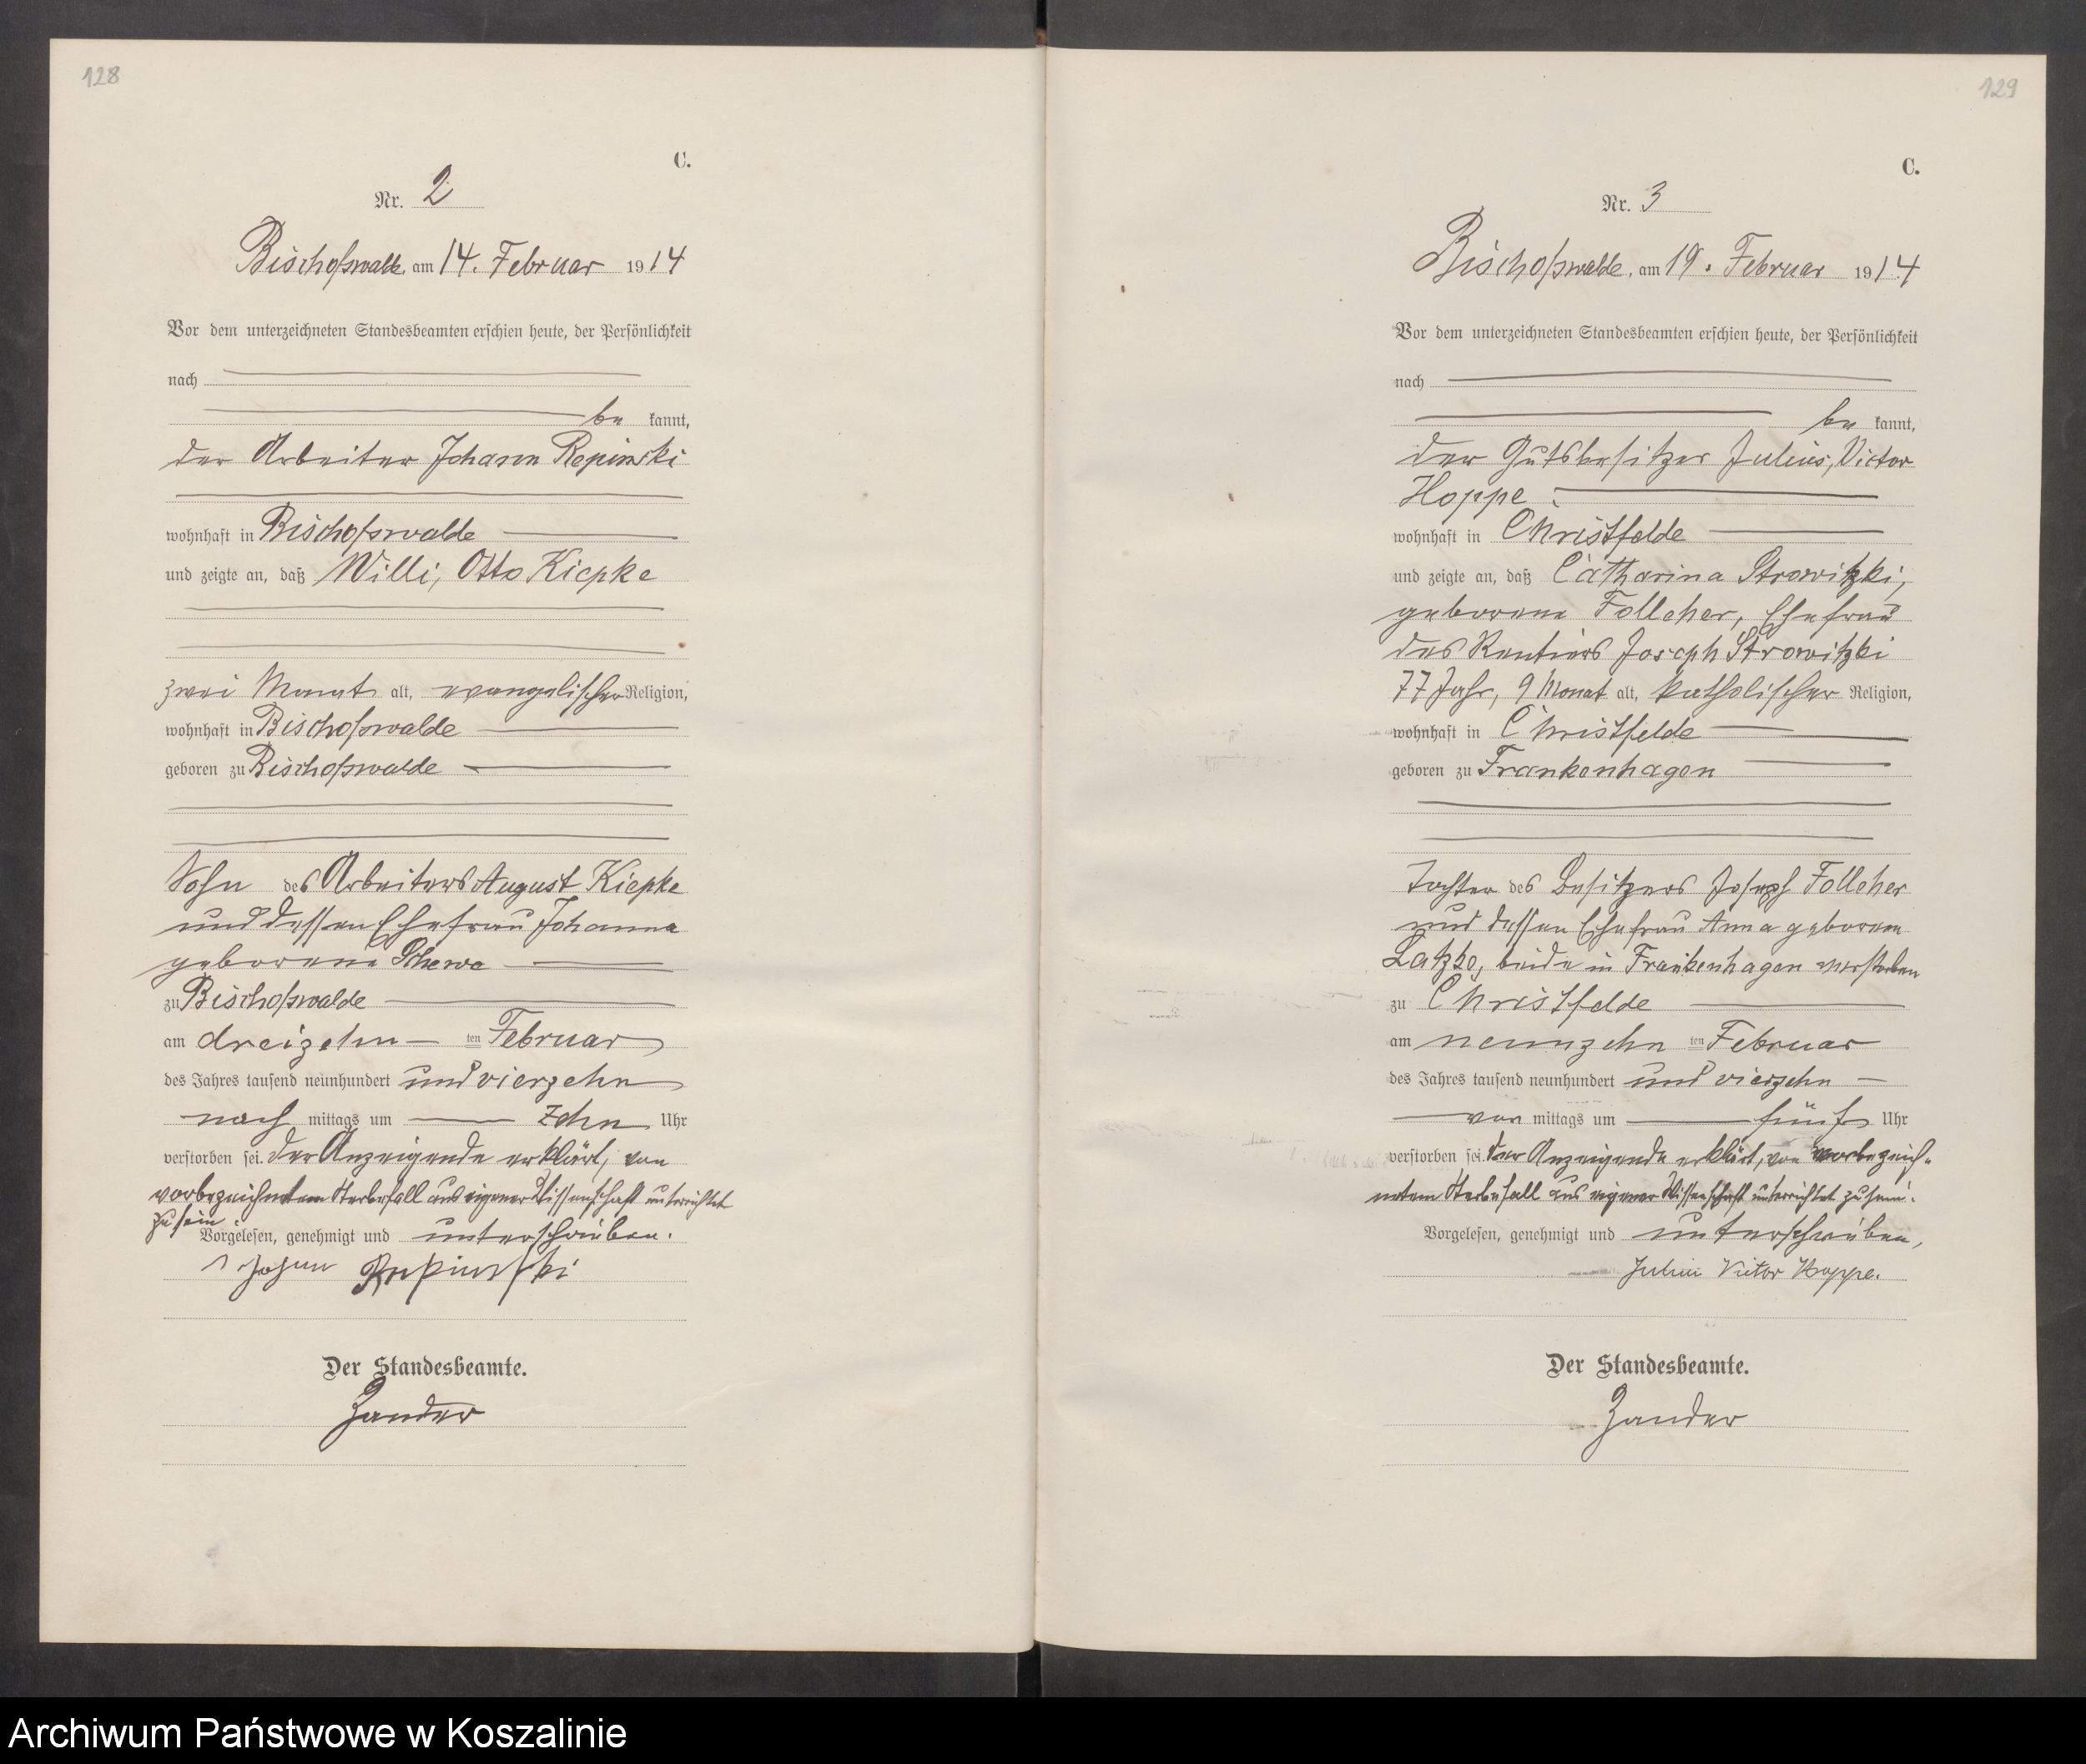 128
C.
Nr. 2
Bischofswalde, am 14. Februar 1914
Vor dem unterzeichneten Standesbeamten erschien heute, der Persönlichkeit
nach
be kannt,
der Arbeiter Johann Repinski
wohnhaft in Bischofswalde
und zeigte an, daß Willi, Otto Kiepke
zwei Monat alt, evangelischer Religion,
wohnhaft in Bischofswalde
geboren zu Bischofswalde
Sohn des Arbeiters August Kiepke
und dessen Ehefrau Johanna
geborene Schewe
zu Bischofswalde
am dreizehn ten Februar
des Jahres tausend neunhundert und vierzehn
nach mittags um zehn Uhr
verstorben sei. Der Anzeigende erklärt, von
vorbezeichnetem Sterbefall aus eigener Wissenschaft unterrichtet
zu sein
Vorgelesen, genehmigt und unterschrieben.
Johann Repinski
Der Standesbeamte.
Zander
129
C.
Nr. 3
Bischofswalde, am 19. Februar 1914
Vor dem unterzeichneten Standesbeamten erschien heute, der Persönlichkeit
nach
be kannt,
der Gutsbesitzer Julius, Victor
Hoppe
wohnhaft in Christfelde
und zeigte an, daß Catharina Strowitzki,
geborene Folleher, Ehefrau
des Rentiers Joseph Strowitzki
77 Jahr, 9 Monat alt, katholischer Religion,
wohnhaft in Christfelde
geboren zu Frankenhagen
Tochter des Besitzers Joseph Folleher
und dessen Ehefrau Anna geborene
Latzke, beide in Frankenhagen verstorben
zu Christfelde
am neunzehn ten Februar
des Jahres tausend neunhundert und vierzehn
vor mittags um fünf Uhr
verstorben sei. Der Anzeigende erklärt, von vorbezeich-
netem Sterbefall aus eigener Wissenschaft unterrichtet zu sein.
Vorgelesen, genehmigt und unterschrieben,
Julius Victor Hoppe.
Der Standesbeamte.
Zander
Archiwum Państwowe w Koszalinie